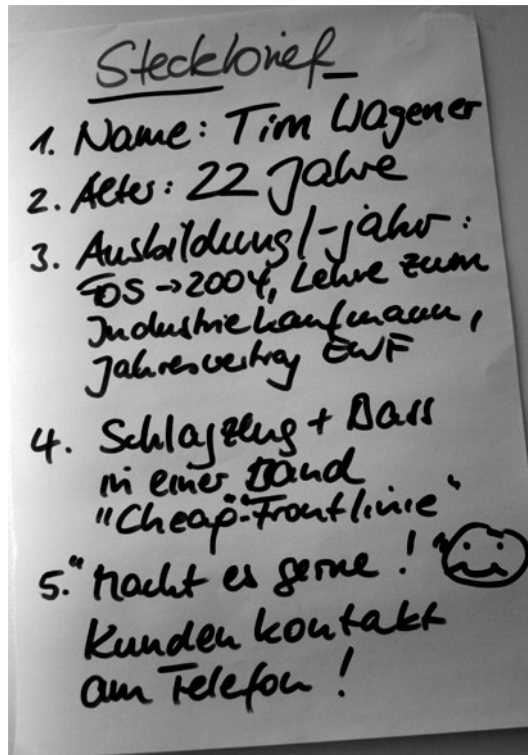 Steckbrief
1. Name: Tim Wagener
2. Alter: 22 Jahre
3. Ausbildung/-jahr:
FOS → 2004, Lehre zum
Industriekaufmann,
Jahresvertrag EWF
4. Schlagzeug + Bass
in einer Band
"Cheap-Frontlinie"
5. "Macht es gerne!"
Kundenkontakt
am Telefon!